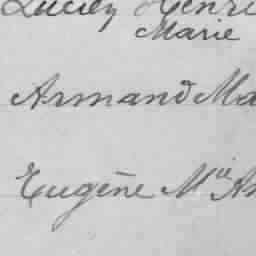 Lucien Henri
Marie
Armand Ma
Eugène Mie A